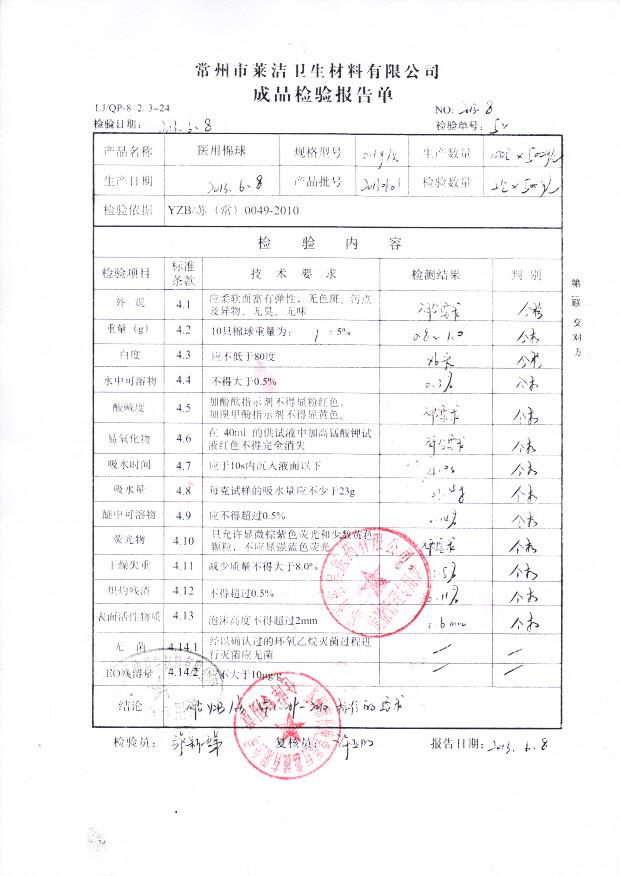 常州市莱洁卫生材料有限公司
成品检验报告单
LJ/QP-8 2.3-24 NO: 2013.8
检验日期: 2013.3.8 检验单号:
产品名称 医用棉球 规格型号 生产数量
生产日期 2013.6.8 产品批号 检验数量
检验依据 YZB/苏(常)0049-2010
检 验 内 容
检验项目 标准条款 技 术 要 求 检测结果 判 别
外 观 4.1 应柔软而富有弹性,无色斑、污点 符合要求 合格
及异物、无臭、无味
重量(g) 4.2 10只棉球重量为: 1 ±5% 0.8~1.0 合格
白度 4.3 应不低于80度 合格
水中可溶物 4.4 不得大于0.5% 0.3% 合格
酸碱度 4.5 加酚酞指示剂不得显粉红色, 符合要求 合格
加溴甲酚指示剂不得显黄色。
易氧化物 4.6 在 40ml 的供试液中加高锰酸钾试 符合要求 合格
液红色不得完全消失
吸水时间 4.7 应于10s内沉入液面以下 合格
吸水量 4.8 每克试样的吸水量应不少于23g 合格
醚中可溶物 4.9 应不得超过0.5% 合格
荧光物 4.10 只允许显微棕紫色荧光和少数黄色 符合要求 合格
颗粒,不应显强蓝色荧光
干燥失重 4.11 减少质量不得大于8.0% 合格
炽灼残渣 4.12 不得超过0.5% 合格
表面活性物质 4.13 泡沫高度不得超过2mm 合格
无 菌 4.14.1 经以确认过的环氧乙烷灭菌过程进 — —
行灭菌应无菌
EO残留量 4.14.2 应不大于10μg/g — —
结论 标准的要求
检验员: 复核员: 报告日期: 2013.6.8
第二联 交对方